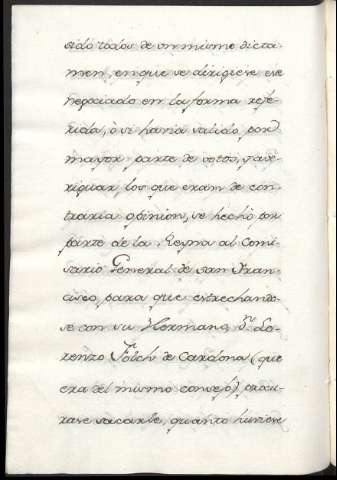 sido todos de un mismo dicta-
men, en que se dirigiese ese
negociado en la forma refe-
rida, ò si havia salido por
mayor parte de votos, y ave-
riguar los que eran de con-
traria opinion, se hechò por
parte de la Reyna al Comi-
sario General de san Fran-
cisco, para que estrechando-
se con su Hermano, Dn. Lo-
renzo Folch de Cardona (que
era del mismo consejo) procu-
rase sacarle, quanto huviese